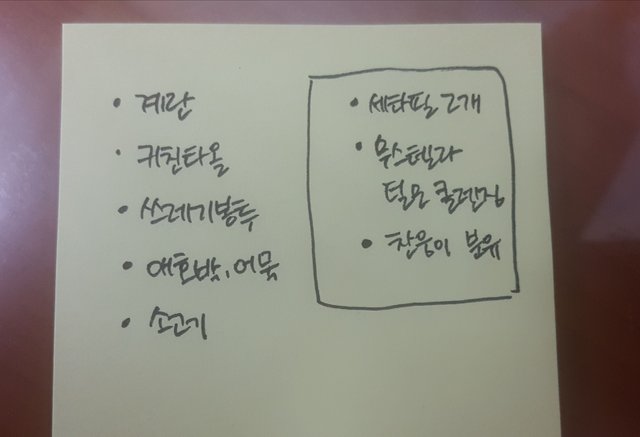 • 계란
• 귀친타올
• 쓰레기봉투
• 애호박, 어묵
• 소고기
• 세타필 2개
• 무스텔라
털모 클렌징
• 찬웅이 분유